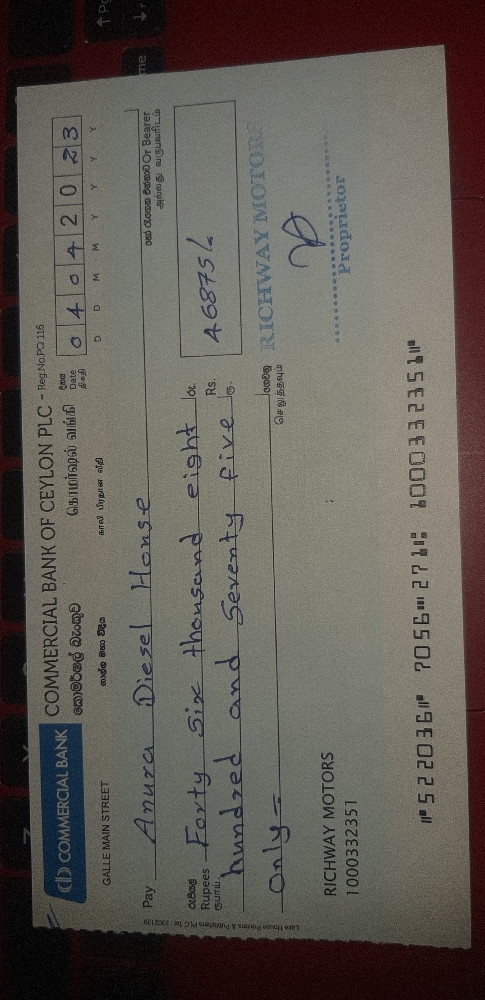 COMMERCIAL BANK
COMMERCIAL BANK OF CEYLON PLC - Reg.No.PQ 116
කොමර්ෂල් බැංකුව
கொமர்ஷல் வங்கி
දිනය
Date
திகதி
0 4 0 4 2 0 2 3
D D M M Y Y Y Y
GALLE MAIN STREET
ගාල්ල මහා වීදිය
காலி பிரதான வீதி
Pay Anura Diesel House
හෝ රැගෙන එනතාට Or Bearer
அல்லது வருபவரிடம்
රුපියල්
Rupees
ரூபாய்
Forty Six thousand eight
hundred and Seventy five
only
රු.
Rs.
ரூ.
46875/-
ගෙවනු
செலுத்தவும்
RICHWAY MOTORS
Proprietor
RICHWAY MOTORS
1000332351
522036 7056 271 1000332351
Lake House Printers & Publishers PLC